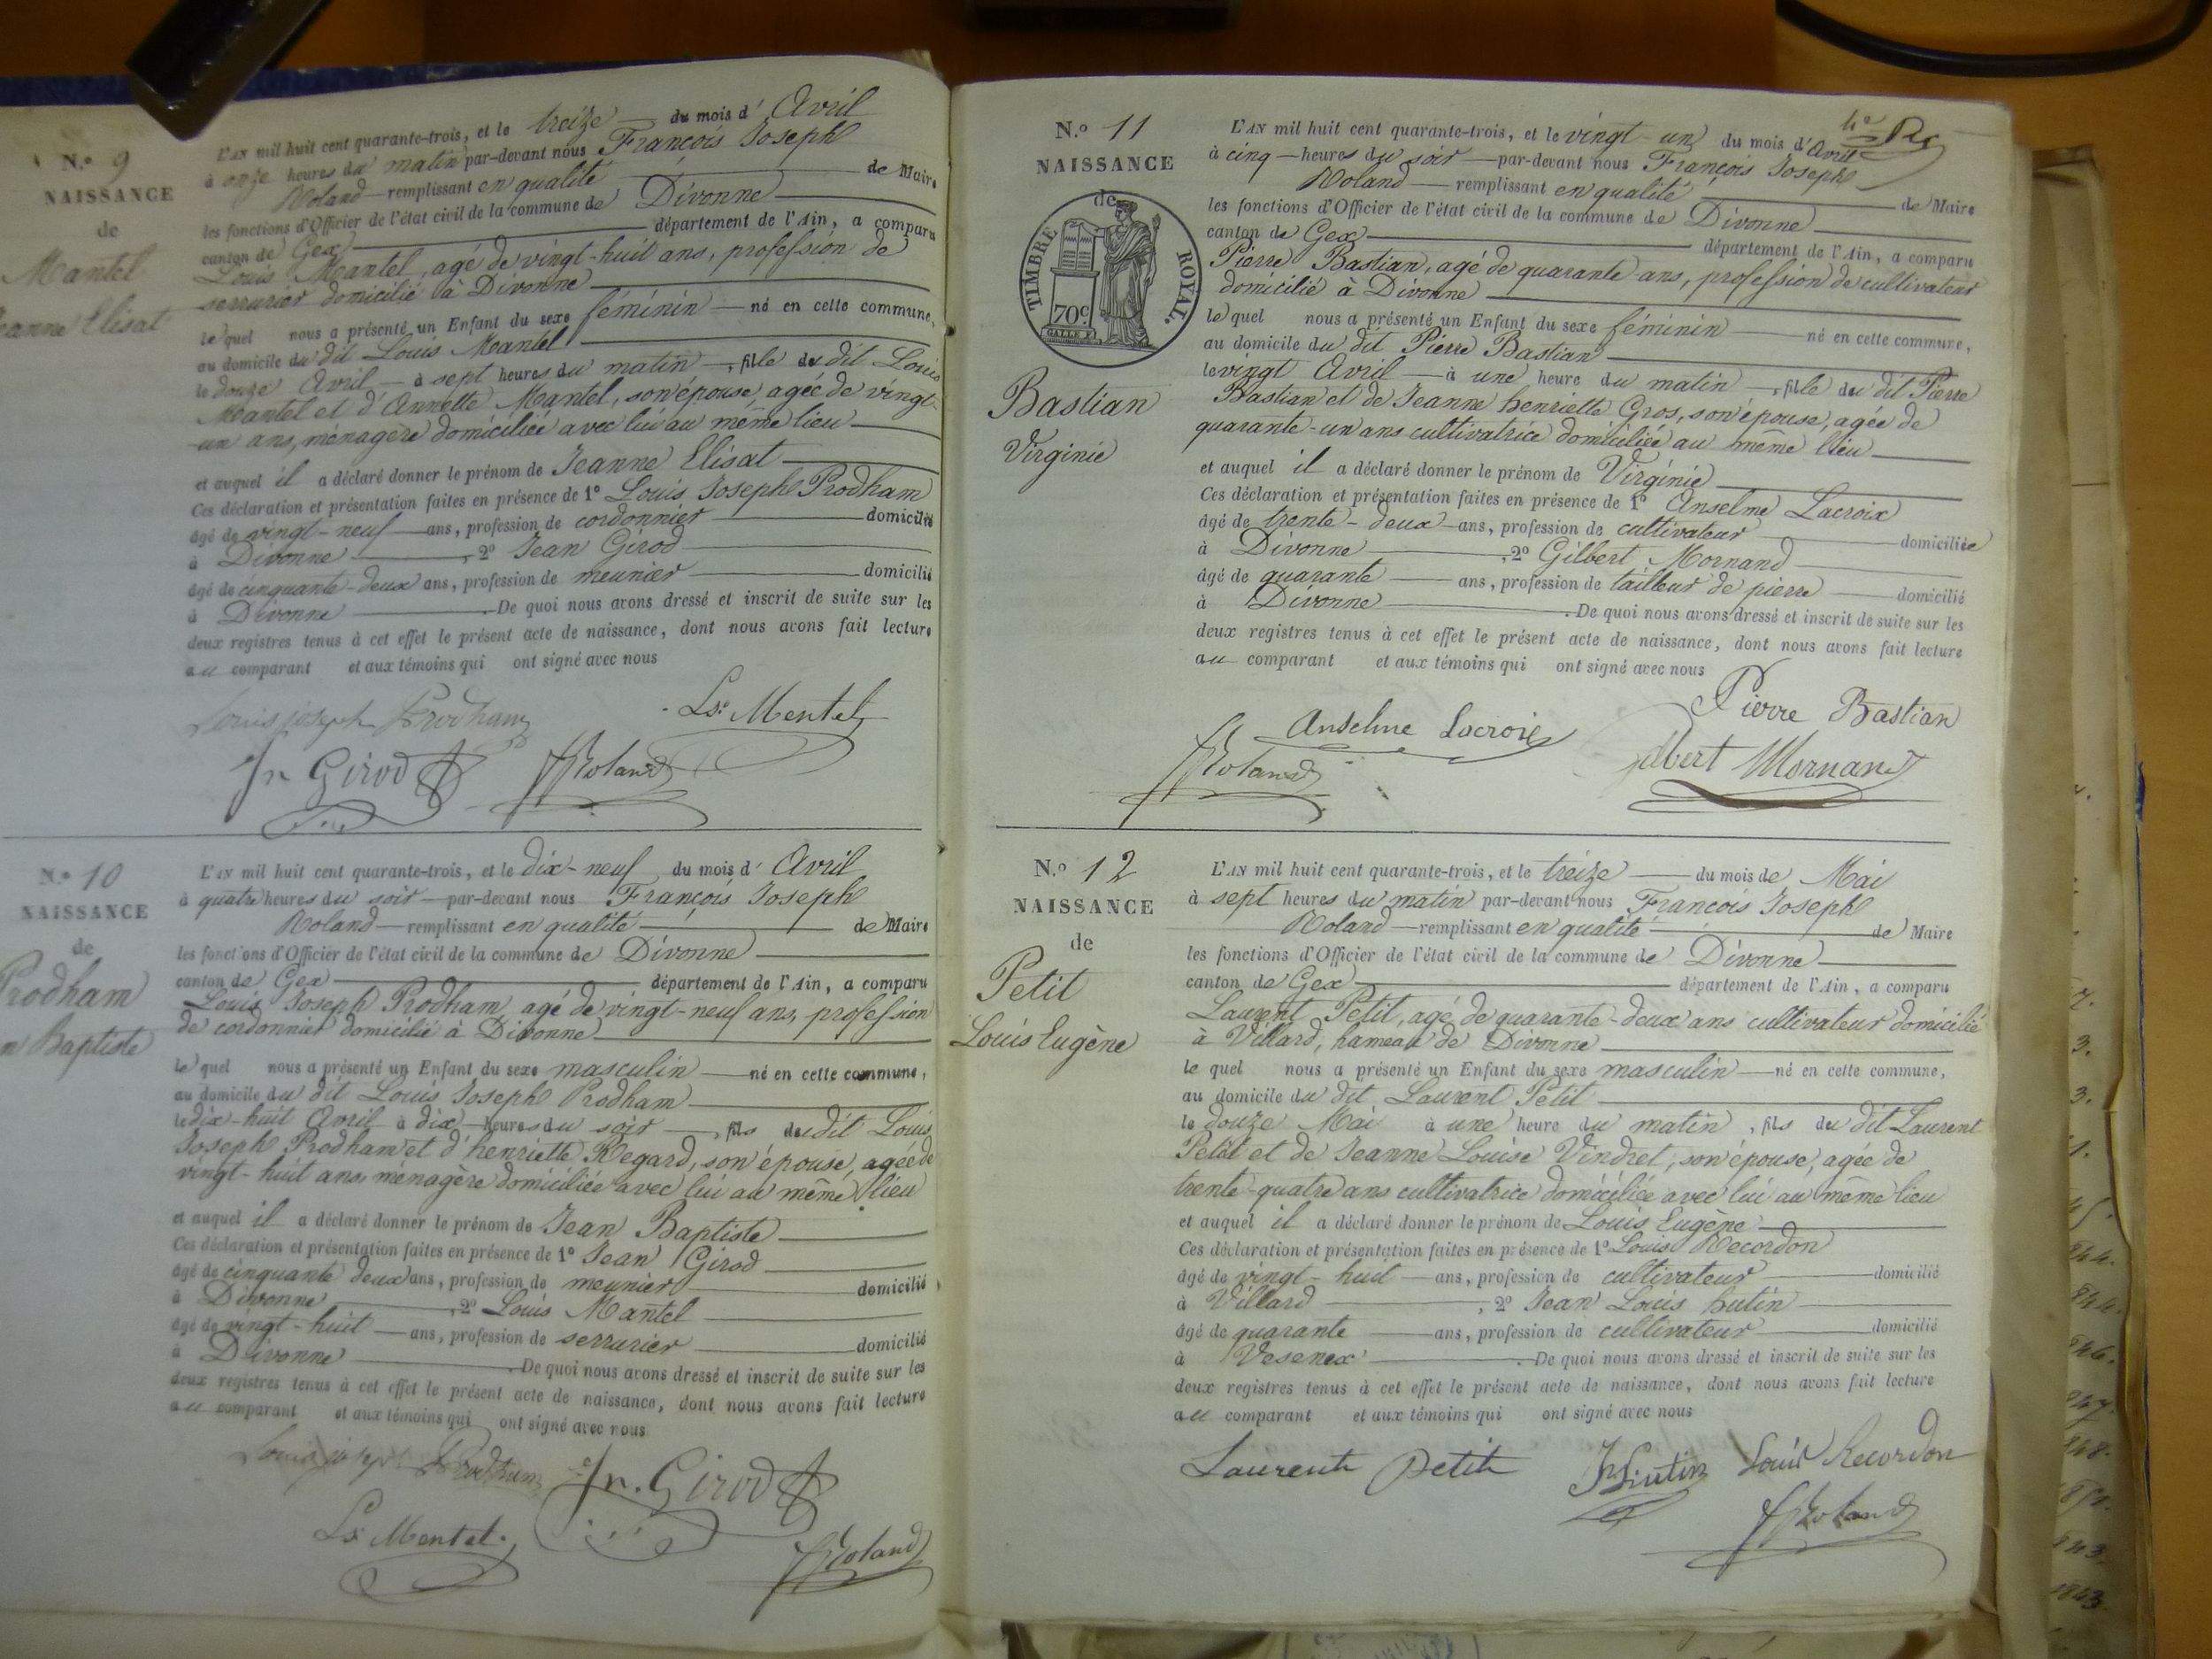 N.º 9
NAISSANCE
de
Mantel
Jeanne Elisat
L'AN mil huit cent quarante-trois, et le treize du mois d' Avril
à onze heures du matin par-devant nous François Joseph
Roland remplissant en qualité de Maire
les fonctions d'Officier de l'état civil de la commune de Divonne
canton de Gex département de l'Ain, a comparu
Louis Mantel, agé de vingt-huit ans, profession de
serrurier domicilié à Divonne
le quel nous a présenté un Enfant du sexe féminin né en cette commune,
au domicile du dit Louis Mantel
le douze Avril à sept heures du matin, fille du dit Louis
Mantel et d'Annette Mantel, son épouse, agée de vingt-
un ans, ménagère domiciliée avec lui au même lieu
et auquel il a déclaré donner le prénom de Jeanne Elisat
Ces déclaration et présentation faites en présence de 1º Louis Joseph Prodham
âgé de vingt-neuf ans, profession de cordonnier domicilié
à Divonne, 2º Jean Girod
âgé de cinquante-deux ans, profession de meunier domicilié
à Divonne. De quoi nous avons dressé et inscrit de suite sur les
deux registres tenus à cet effet le présent acte de naissance, dont nous avons fait lecture
au comparant et aux témoins qui ont signé avec nous
Louis joseph Prodham Ls. Mentel
Jn Girod JfRoland
N.º 10
NAISSANCE
de
Prodham
n Baptiste
L'AN mil huit cent quarante-trois, et le dix-neuf du mois d' Avril
à quatre heures du soir par-devant nous François Joseph
Roland remplissant en qualité de Maire
les fonctions d'Officier de l'état civil de la commune de Divonne
canton de Gex département de l'Ain, a comparu
Louis Joseph Prodham, agé de vingt-neuf ans, profession
de cordonnier domicilié à Divonne
le quel nous a présenté un Enfant du sexe masculin né en cette commune,
au domicile du dit Louis Joseph Prodham
le dix-huit Avril à dix heures du soir, fils du dit Louis
Joseph Prodham et d'henriette Regard, son épouse, agée de
vingt-huit ans ménagère domiciliée avec lui au même lieu
et auquel il a déclaré donner le prénom de Jean Baptiste
Ces déclaration et présentation faites en présence de 1º Jean Girod
âgé de cinquante deux ans, profession de meunier domicilié
à Divonne, 2º Louis Mantel
âgé de vingt-huit ans, profession de serrurier domicilié
à Divonne. De quoi nous avons dressé et inscrit de suite sur les
deux registres tenus à cet effet le présent acte de naissance, dont nous avons fait lecture
au comparant et aux témoins qui ont signé avec nous
Louis joseph Prodham Jn. Girod
Ls. Mentel. JfRoland
N.º 11
NAISSANCE
de
TIMBRE ROYAL.
70c
GALLE F.
Bastian
Virginie
L'AN mil huit cent quarante-trois, et le vingt-un du mois d'Avril
à cinq heures du soir par-devant nous François Joseph
Roland remplissant en qualité de Maire
les fonctions d'Officier de l'état civil de la commune de Divonne
canton de Gex département de l'Ain, a comparu
Pierre Bastian, agé de quarante ans, profession de cultivateur
domicilié à Divonne
le quel nous a présenté un Enfant du sexe féminin né en cette commune,
au domicile du dit Pierre Bastian
le vingt Avril à une heure du matin, fille du dit Pierre
Bastian et de Jeanne henriette Gros, son épouse, agée de
quarante-un ans cultivatrice domiciliée au même lieu
et auquel il a déclaré donner le prénom de Virginie
Ces déclaration et présentation faites en présence de 1º Anselme Lacroix
âgé de trente-deux ans, profession de cultivateur domiciliée
à Divonne, 2º Gilbert Mornand
âgé de quarante ans, profession de tailleur de pierre domicilié
à Divonne. De quoi nous avons dressé et inscrit de suite sur les
deux registres tenus à cet effet le présent acte de naissance, dont nous avons fait lecture
au comparant et aux témoins qui ont signé avec nous
Pierre Bastian
Anselme Lacroix
JfRoland Gilbert Mornand
N.º 12
NAISSANCE
de
Petit
Louis Eugène
L'AN mil huit cent quarante-trois, et le treize du mois de Mai
à sept heures du matin par-devant nous François Joseph
Roland remplissant en qualité de Maire
les fonctions d'Officier de l'état civil de la commune de Divonne
canton de Gex département de l'Ain, a comparu
Laurent Petit, agé de quarante-deux ans cultivateur domicilié
à Villard, hameau de Divonne
le quel nous a présenté un Enfant du sexe masculin né en cette commune,
au domicile du dit Laurent Petit
le douze Mai à une heure du matin, fils du dit Laurent
Petit et de Jeanne Louise Vindret, son épouse, agée de
trente-quatre ans cultivatrice domiciliée avec lui au même lieu
et auquel il a déclaré donner le prénom de Louis Eugène
Ces déclaration et présentation faites en présence de 1º Louis Recordon
âgé de vingt-huit ans, profession de cultivateur domicilié
à Villard, 2º Jean Louis hutin
âgé de quarante ans, profession de cultivateur domicilié
à Vesenex. De quoi nous avons dressé et inscrit de suite sur les
deux registres tenus à cet effet le présent acte de naissance, dont nous avons fait lecture
au comparant et aux témoins qui ont signé avec nous
Laurent Petit JLhutin Louis Recordon
JfRoland